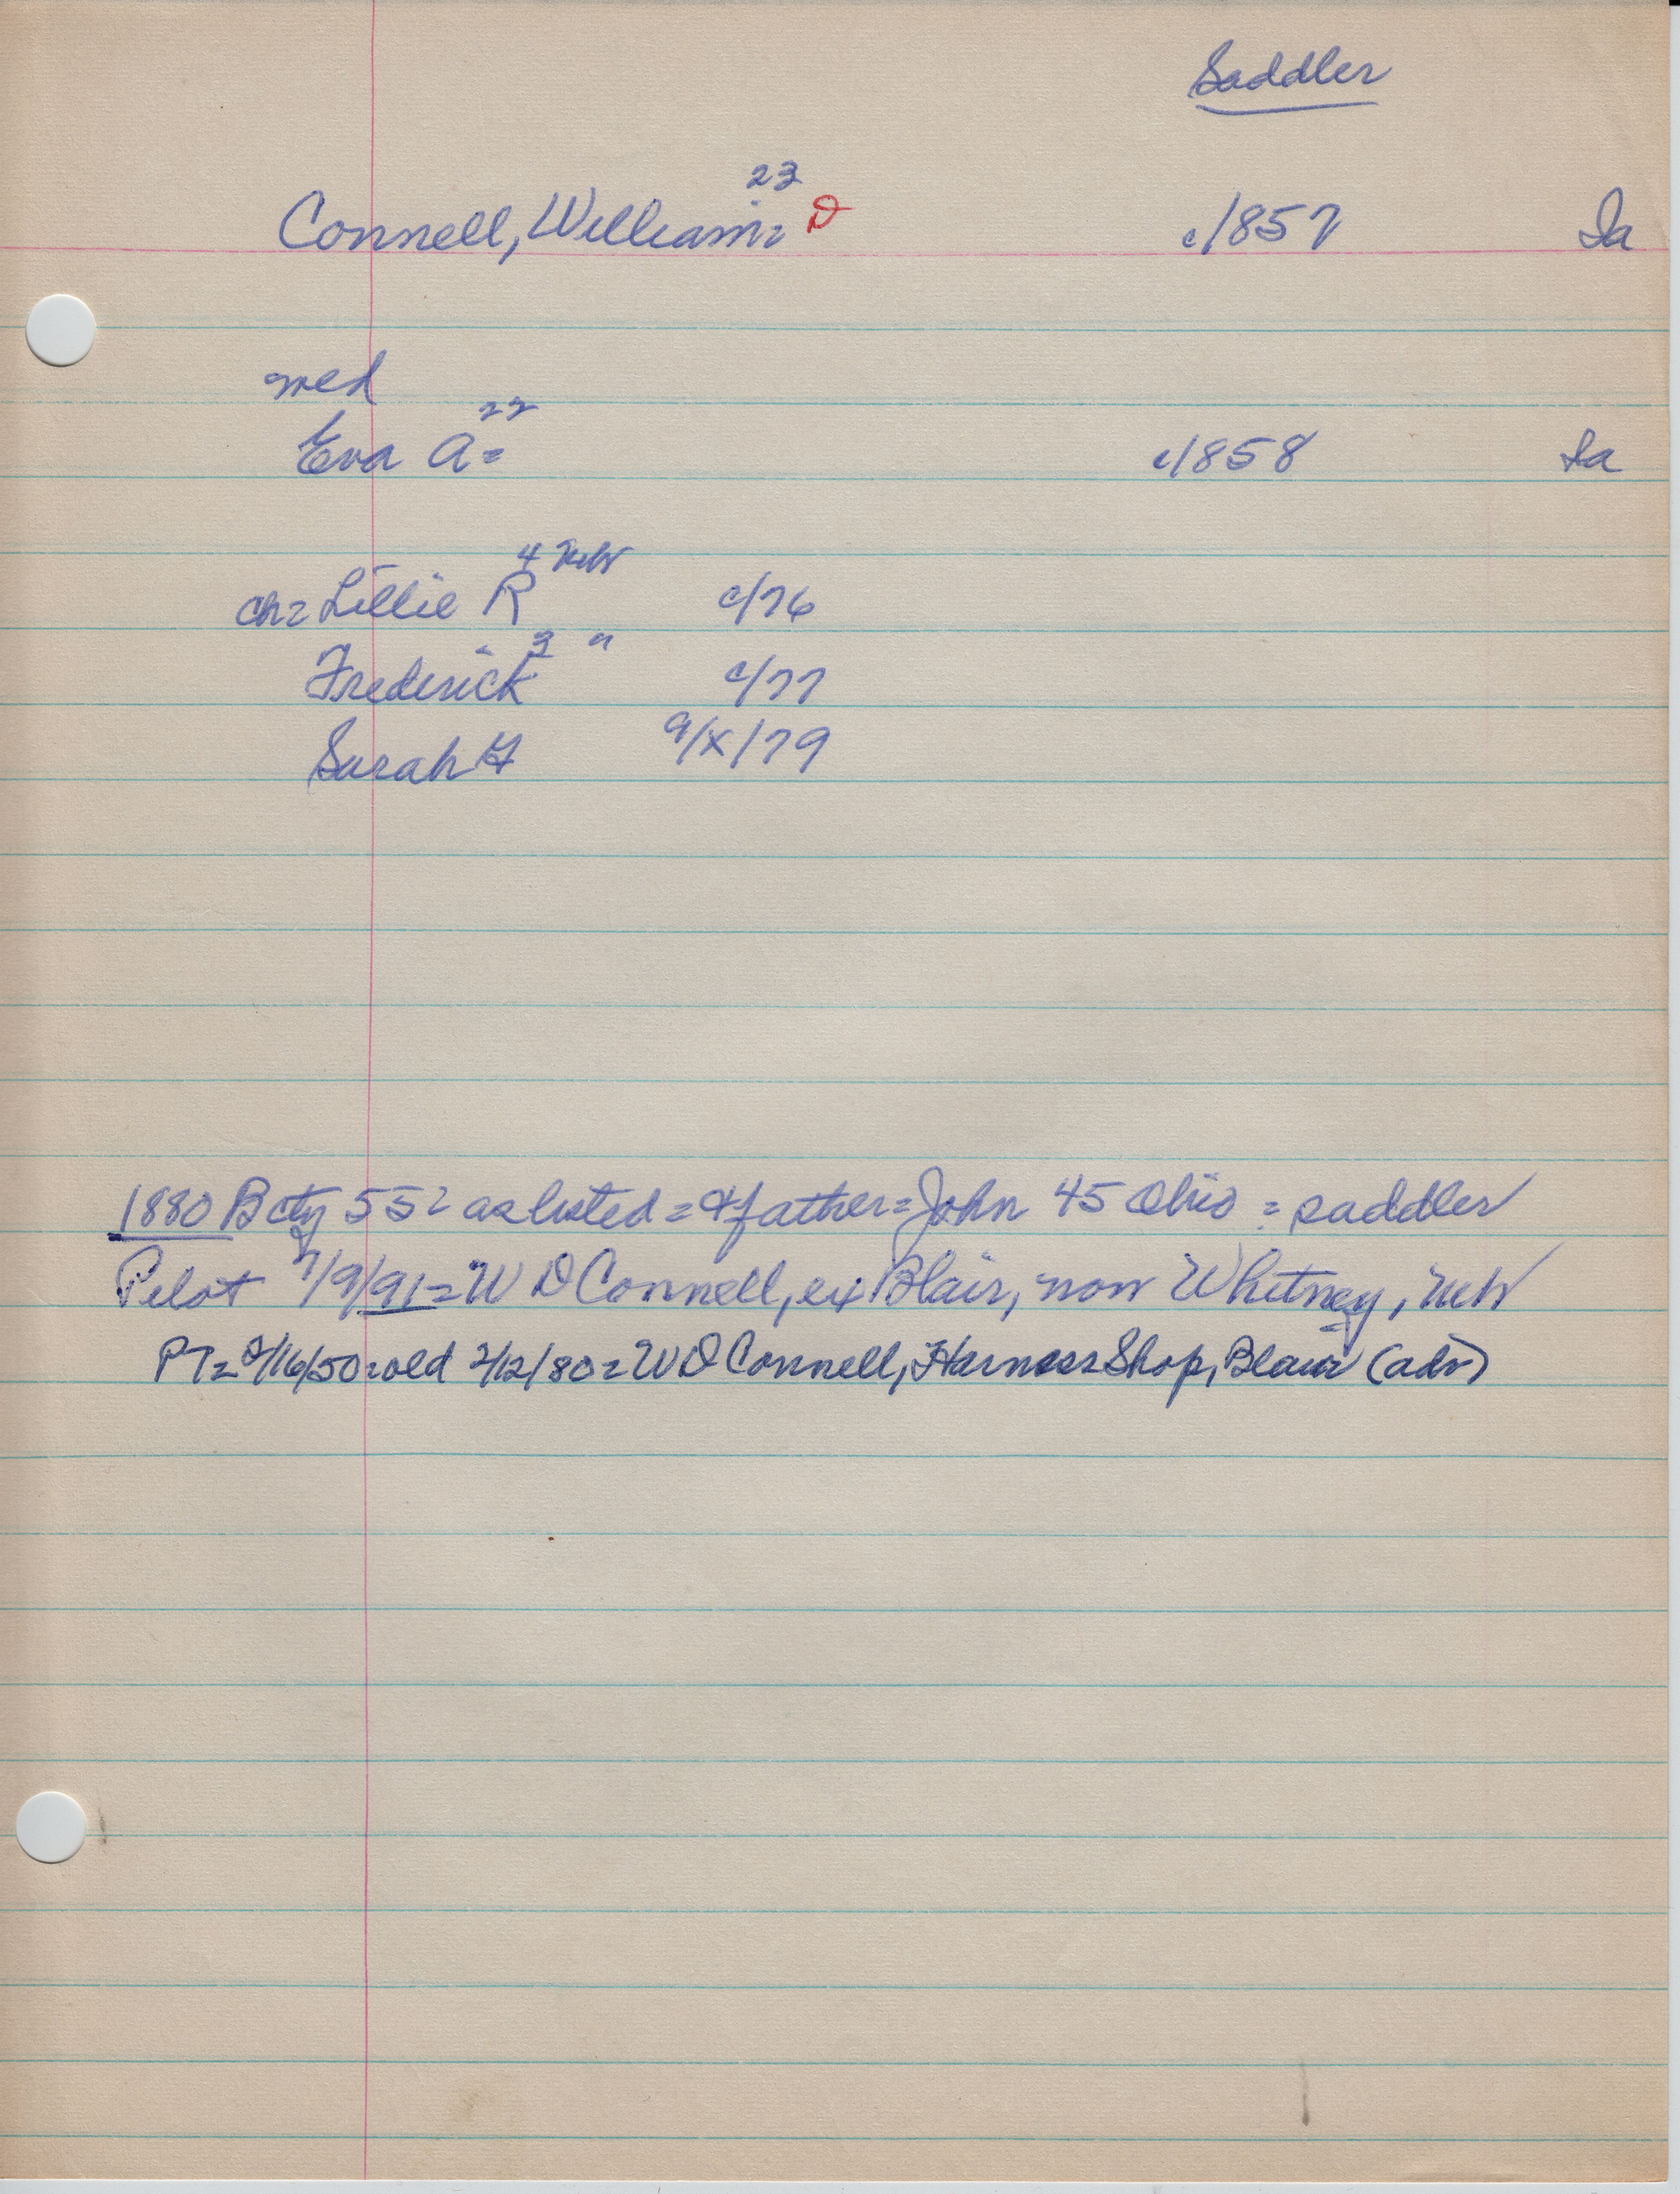 Saddler
23
Connell, William = D c/1857 Ia
med
22
Eva A = c/1858 Ia
4 Neb
ch = Lillie R c/76
3 "
Frederick c/77
Sarah 9/x/79
1880 Bcty 552 as listed = & father = John 45 Ohio = saddler
Pilot 7/9/91 = W D Connell, ex Blair, now Whitney, Neb
PT = /16/50 = old 2/12/80 = W D Connell, Harness Shop, Blair (adv)